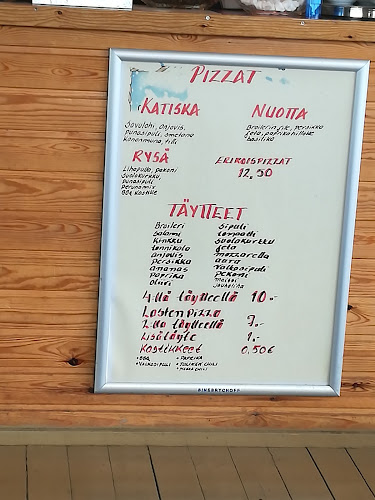 PIZZAT
KATISKA
Savulohi, anjovis,
punasipuli, smetana
kananmuna, tilli
NUOTTA
Broilerin file, persikka
feta, paprikahilloke
basilika
RYSÄ
Lihapulla, pekoni
suolakurkku,
punasipuli
perunamix
BBQ kastike
ERIKOISPIZZAT
12,50
TÄYTTEET
Broileri
salami
kinkku
tonnikala
anjovis
persikka
ananas
paprika
oliivi
sipuli
suolakurkku
feta
mozzarella
aura
valkosipuli
pekoni
jauheliha
4:llä täytteellä 10.-
Lasten pizza
2:lla täytteellä 7.-
Lisätäyte 1.-
Kastikkeet 0,50€
• BBQ
• VALKOSIPULI
• PAPRIKA
• TULINEN CHILI
SINEBRYCHOFF